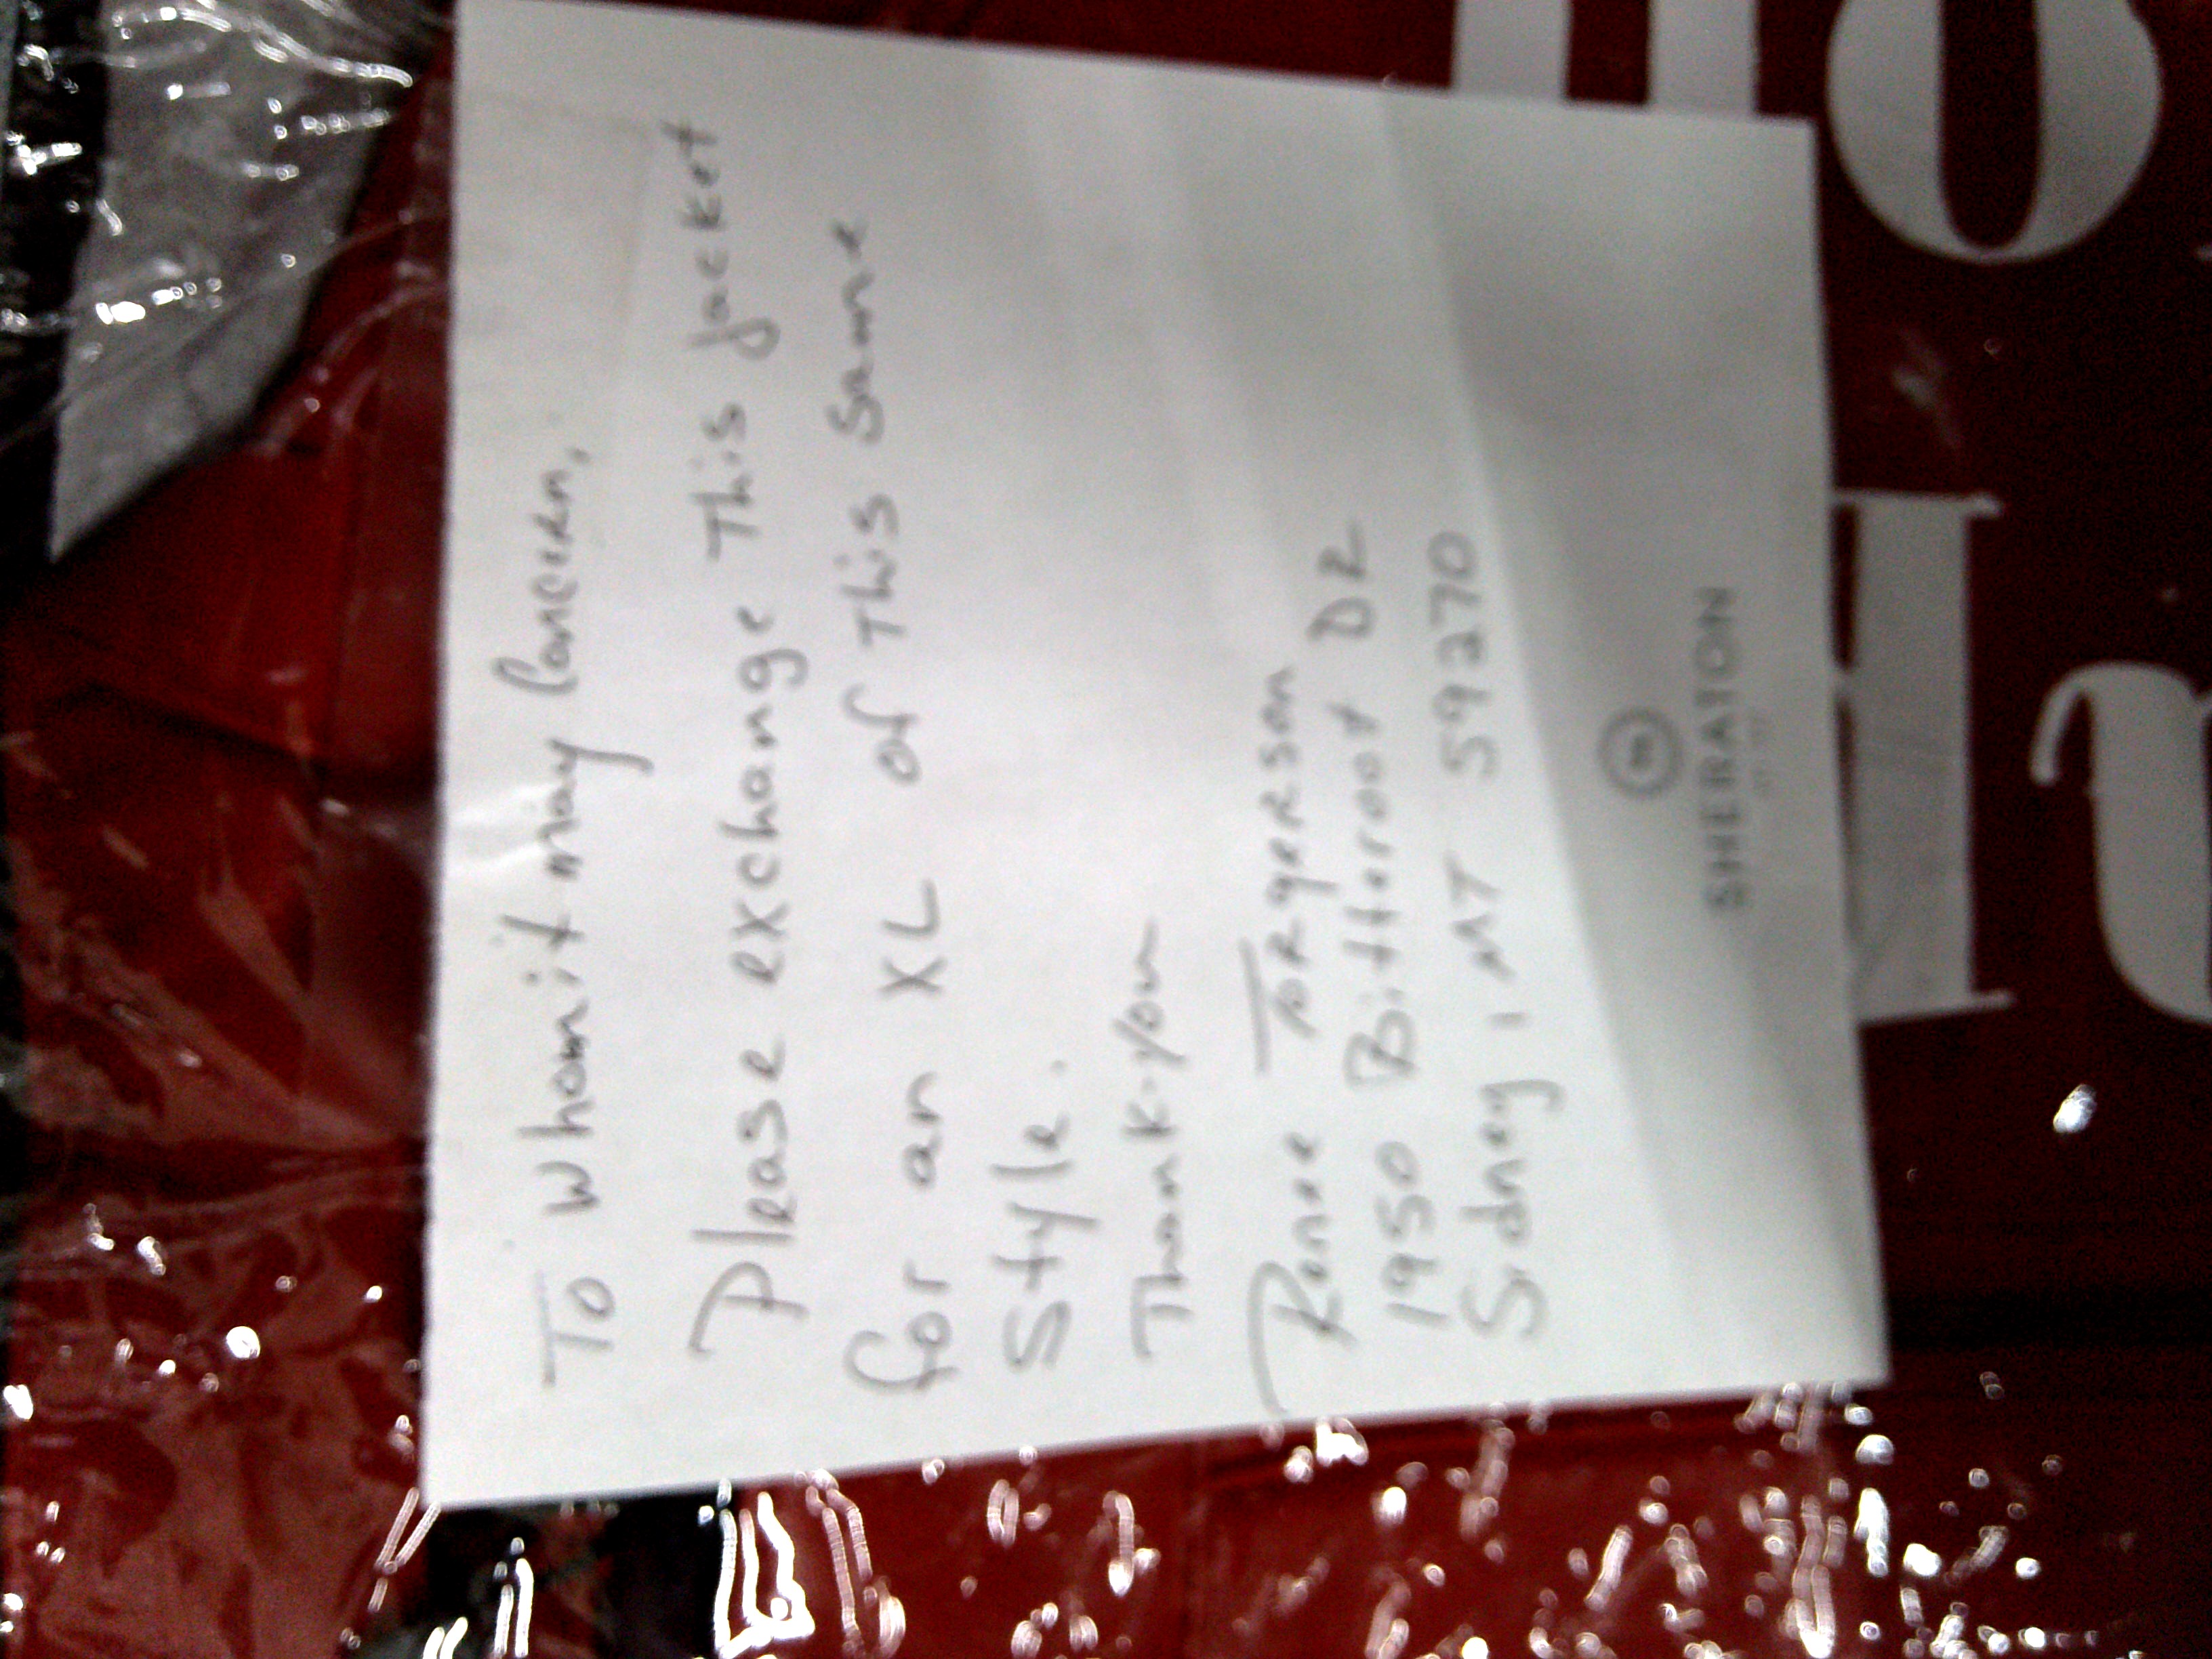 To whom it may Concern,
Please exchange This Jacket
for an XL of This Same
Style.
Thank-you
Renee Torgerson
1950 Bitteroot DR
Sidney, MT 59270
SHERATON